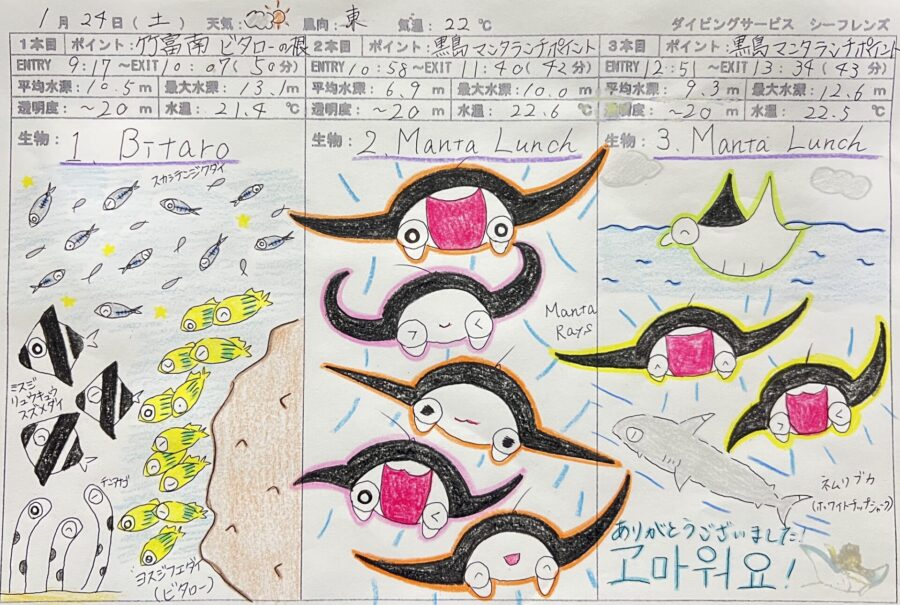 1月24日(土) 天気: 風向:東 気温:22℃ ダイビングサービス シーフレンズ
1本目 ポイント:竹富南 ビタローの根
ENTRY 9:17 ~EXIT 10:07(50分)
平均水深:10.5m 最大水深:13.1m
透明度:~20m 水温:21.4℃
生物: 1. Bitaro
スカシテンジクダイ
ミスジ
リュウキュウ
スズメダイ
チンアナゴ
ヨスジフエダイ
(ビタロー)
2本目 ポイント:黒島マンタランチポイント
ENTRY 10:58~EXIT 11:40(42分)
平均水深:6.9m 最大水深:10.0m
透明度:~20m 水温:22.6℃
生物: 2. Manta Lunch
Manta
Rays
3本目 ポイント:黒島マンタランチポイント
ENTRY 12:51~EXIT 13:34(43分)
平均水深:9.3m 最大水深:12.6m
透明度:~20m 水温:22.5℃
生物: 3. Manta Lunch
ネムリブカ
(ホワイトチップシャーク)
ありがとうございました!
고마워요!